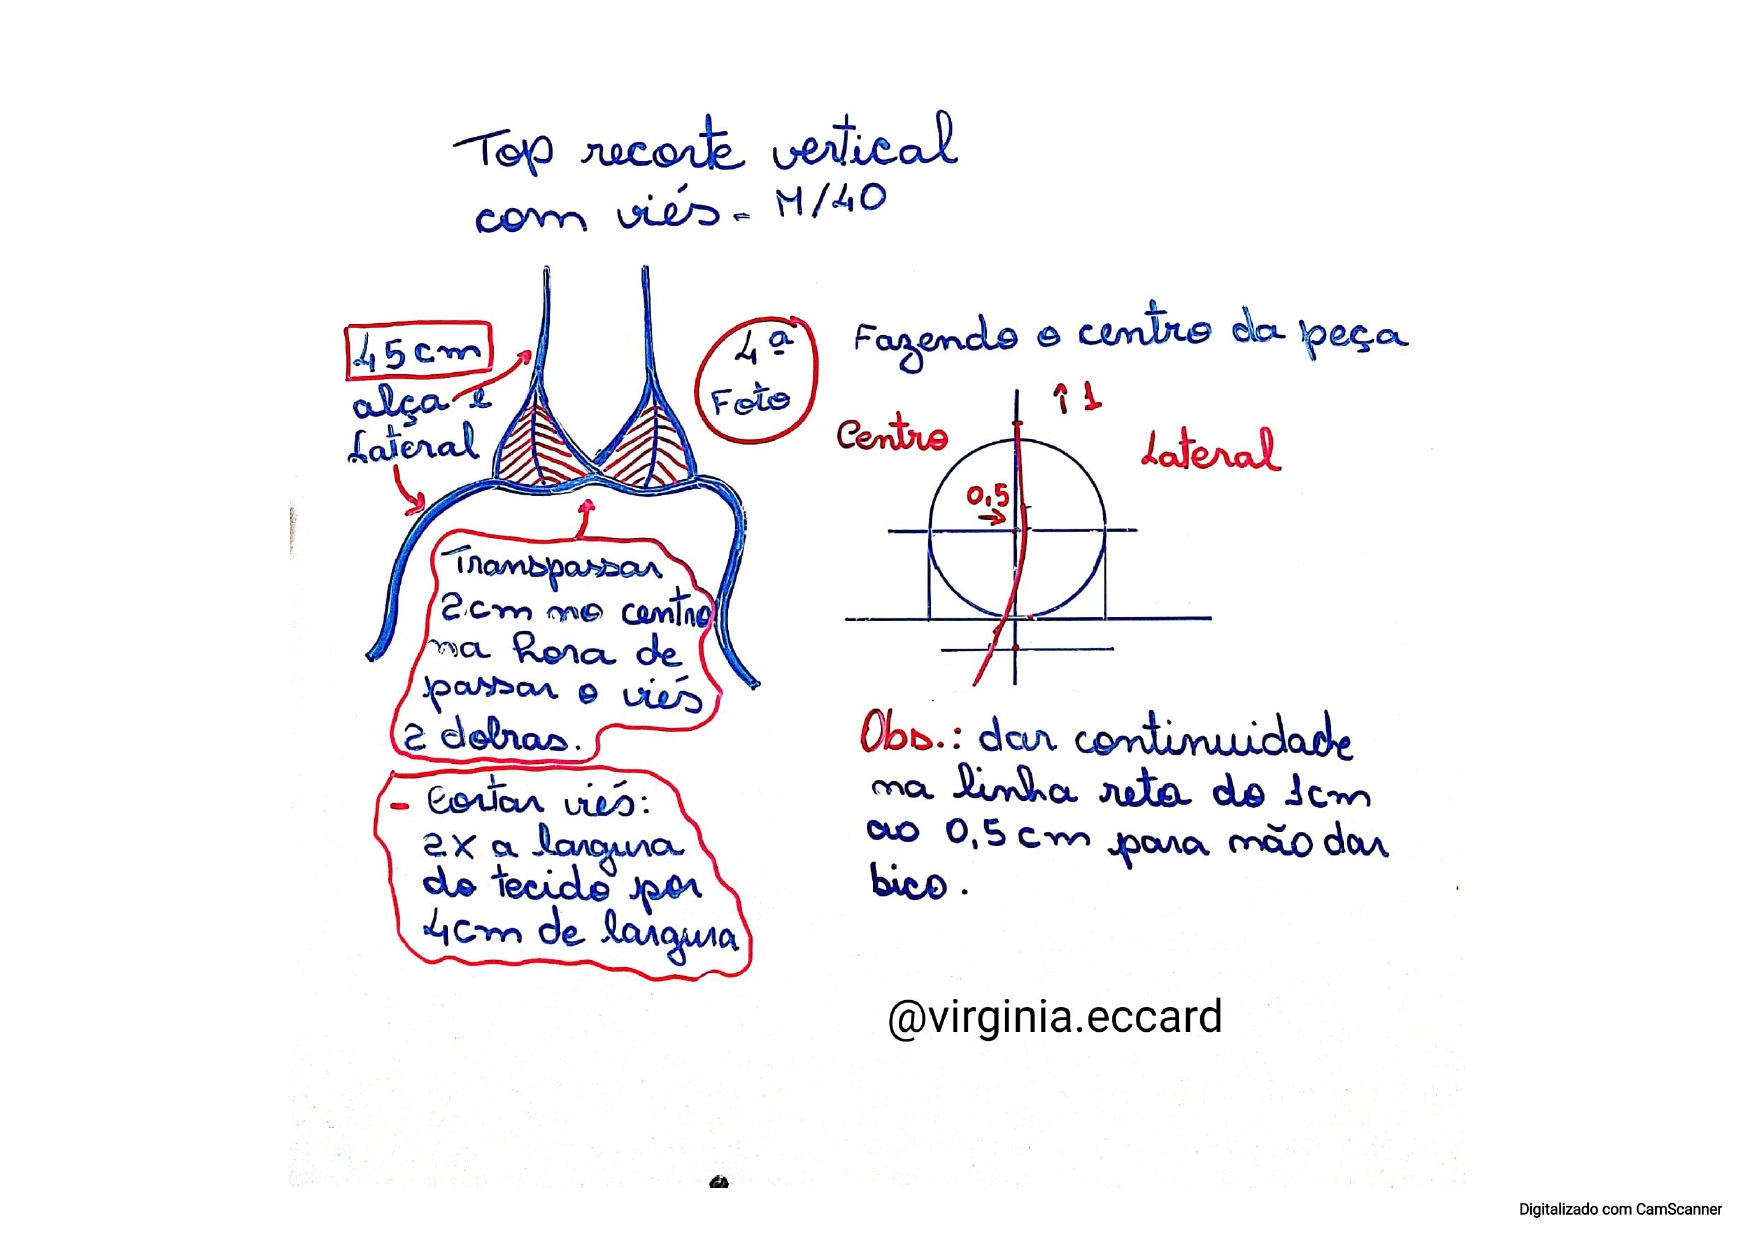 Top recorte vertical
com viés - M/40
45cm
alça e
Lateral
4ª
Foto
Transpassar
2cm no centro
na hora de
passar o viés
2 dobras.
- Cortar viés:
2x a largura
do tecido por
4cm de largura
Fazendo o centro da peça
↑1
Centro
Lateral
0,5
→
Obs.: dar continuidade
na linha reta do 1cm
ao 0,5cm para não dar
bico.
@virginia.eccard
Digitalizado com CamScanner